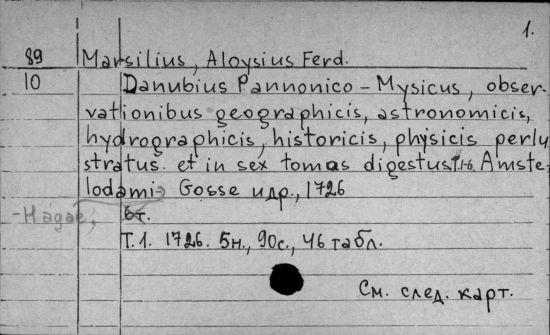 1.
89 Marsilius, Aloysius Ferd.
10 Danubius Pannonico - Mysicus, obser-
vationibus geographicis, astronomicis,
hydrographicis, historicis, physicis perlu
stratus et in sex tomos digestus. T.1-6. Amste-
lodami; Gosse и др., 1726
- Hagae; 6т.
Т.1. 1726. 5н., 90с., 46 табл.
См. след. карт.